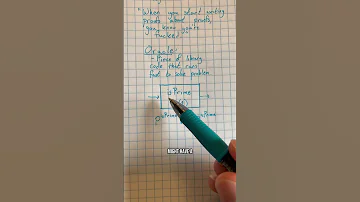 "When you start writing
proofs about proofs,
you know you're
fucked"
Oracle
- Piece of library
code that runs
fast to solve problem
isPrime
isPrime
MIGHT HAVE A